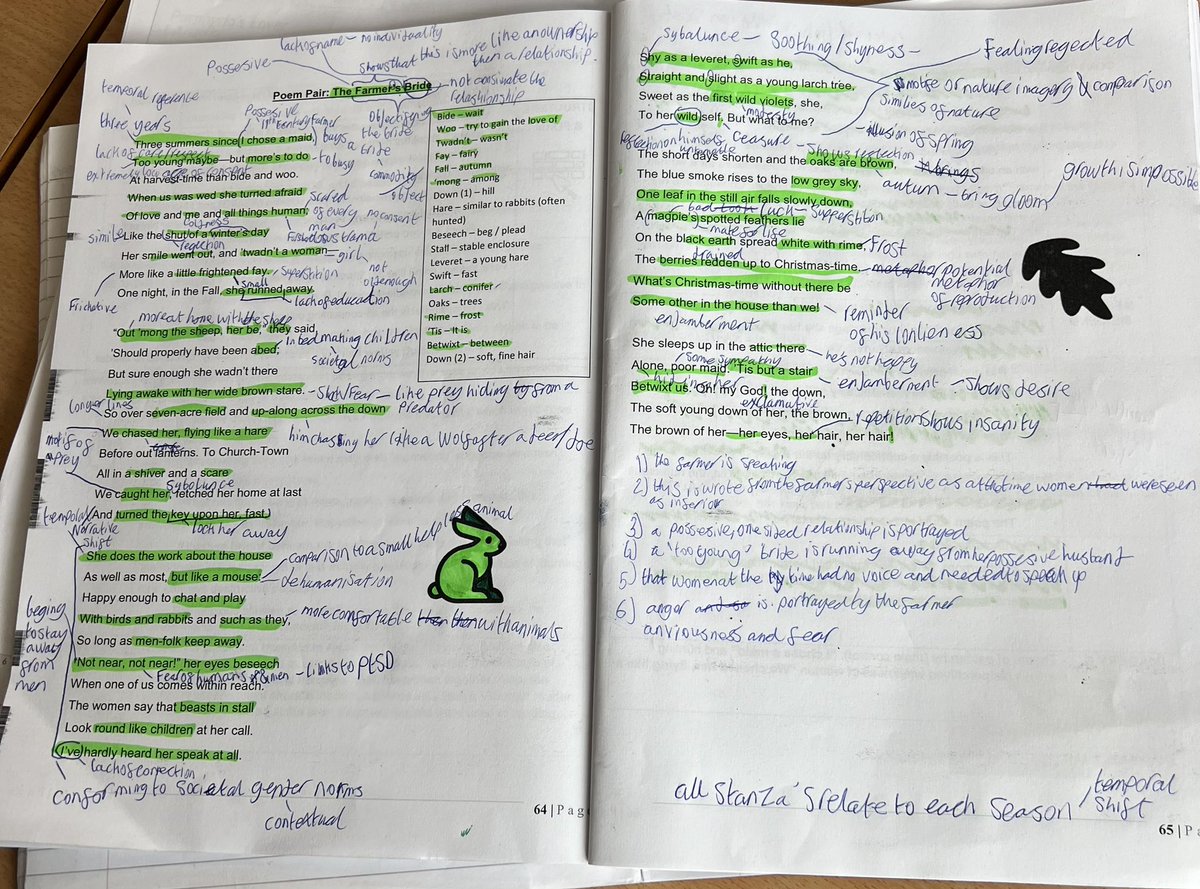 lack of name - no individuality
shows that this is more like an ownership
then a relationship.
Possesive
Poem Pair: The Farmer's Bride
not consimate the
relashionship
temporal reference
three years
Possesive
Farmer
buys
a bride
Objectifying
the bride
Three summers since I chose a maid,
Too young maybe—but more's to do
to busy
commodity
object
At harvest-time than bide and woo.
When us was wed she turned afraid
scared
of every
man
no consent
Of love and me and all things human;
simile
Like the shut of a winter's day
rejection
Her smile went out, and 'twadn't a woman—
girl
not
old enough
More like a little frightened fay.
small
Superstition
One night, in the Fall, she runned away.
lack of education
Frichative
more at home with the sheep
"Out 'mong the sheep, her be," they said,
in bed making children
'Should properly have been abed;
societal norms
But sure enough she wasn't there
Lying awake with her wide brown stare.
Fear - like prey hiding from a
predator
longer lines
So over seven-acre field and up-along across the down
We chased her, flying like a hare
him chasing her like a wolf after a deer/doe
motif of
prey
Before out lanterns. To Church-Town
All in a shiver and a scare
Sybolunce
We caught her, fetched her home at last
And turned the key upon her, fast.
lock her away
temporal
Narrative
shift
She does the work about the house
comparison to a small helpless animal
As well as most, but like a mouse:
dehumanisation
Happy enough to chat and play
With birds and rabbits and such as they,
more comfortable with animals
So long as men-folk keep away.
beging
to stay
away
from
men
"Not near, not near!" her eyes beseech
Fear of humans
men - links to PtSD
When one of us comes within reach.
The women say that beasts in stall
Look round like children at her call.
I've hardly heard her speak at all.
lack of conection
conforming to societal gender norms
contextual
64 | Pag
Bide – wait
Woo – try to gain the love of
Twadn't – wasn't
Fay – fairy
Fall – autumn
'mong – among
Down (1) – hill
Hare – similar to rabbits (often
hunted)
Beseech – beg / plead
Stall – stable enclosure
Leveret – a young hare
Swift – fast
Larch – conifer
Oaks – trees
Rime – frost
'Tis – It is
Betwixt – between
Down (2) – soft, fine hair
sybalunce - Soothing/shyness -
Fealing regected
Shy as a leveret, swift as he,
more of nature imagery & comparison
Straight and slight as a young larch tree,
similies of nature
Sweet as the first wild violets, she,
modesty
To her wild self. But what to me?
illusion of spring
ceasure
shows rejection
The short days shorten and the oaks are brown,
autumn - bring gloom
growth is impossible
The blue smoke rises to the low grey sky,
One leaf in the still air falls slowly down,
bad luck - superstition
A magpie's spotted feathers lie
mates for life
On the black earth spread white with rime,
Frost
The berries redden up to Christmas-time.
potential
metaphor
of reproduction
What's Christmas-time without there be
Some other in the house than we!
reminder
of his lonlieness
enjamberment
She sleeps up in the attic there
he's not happy
some sympathy
Alone, poor maid. 'Tis but a stair
enjamberment - shows desire
Betwixt us. Oh! my God! the down,
exclamative
The soft young down of her, the brown,
repitition shows insanity
The brown of her—her eyes, her hair, her hair!
1) the farmer is speaking
2) this is wrote from the farmer's perspective as at the time women were seen
as inferior
3) a possessive, one sided relationship is portrayed
4) a 'too young' bride is running away from her possesive husbant
5) that women at the time had no voice and needed to speek up
6) anger is portrayed by the farmer
anxiousness and fear
all stanza's relate to each season
temporal
shift
65 | Pa